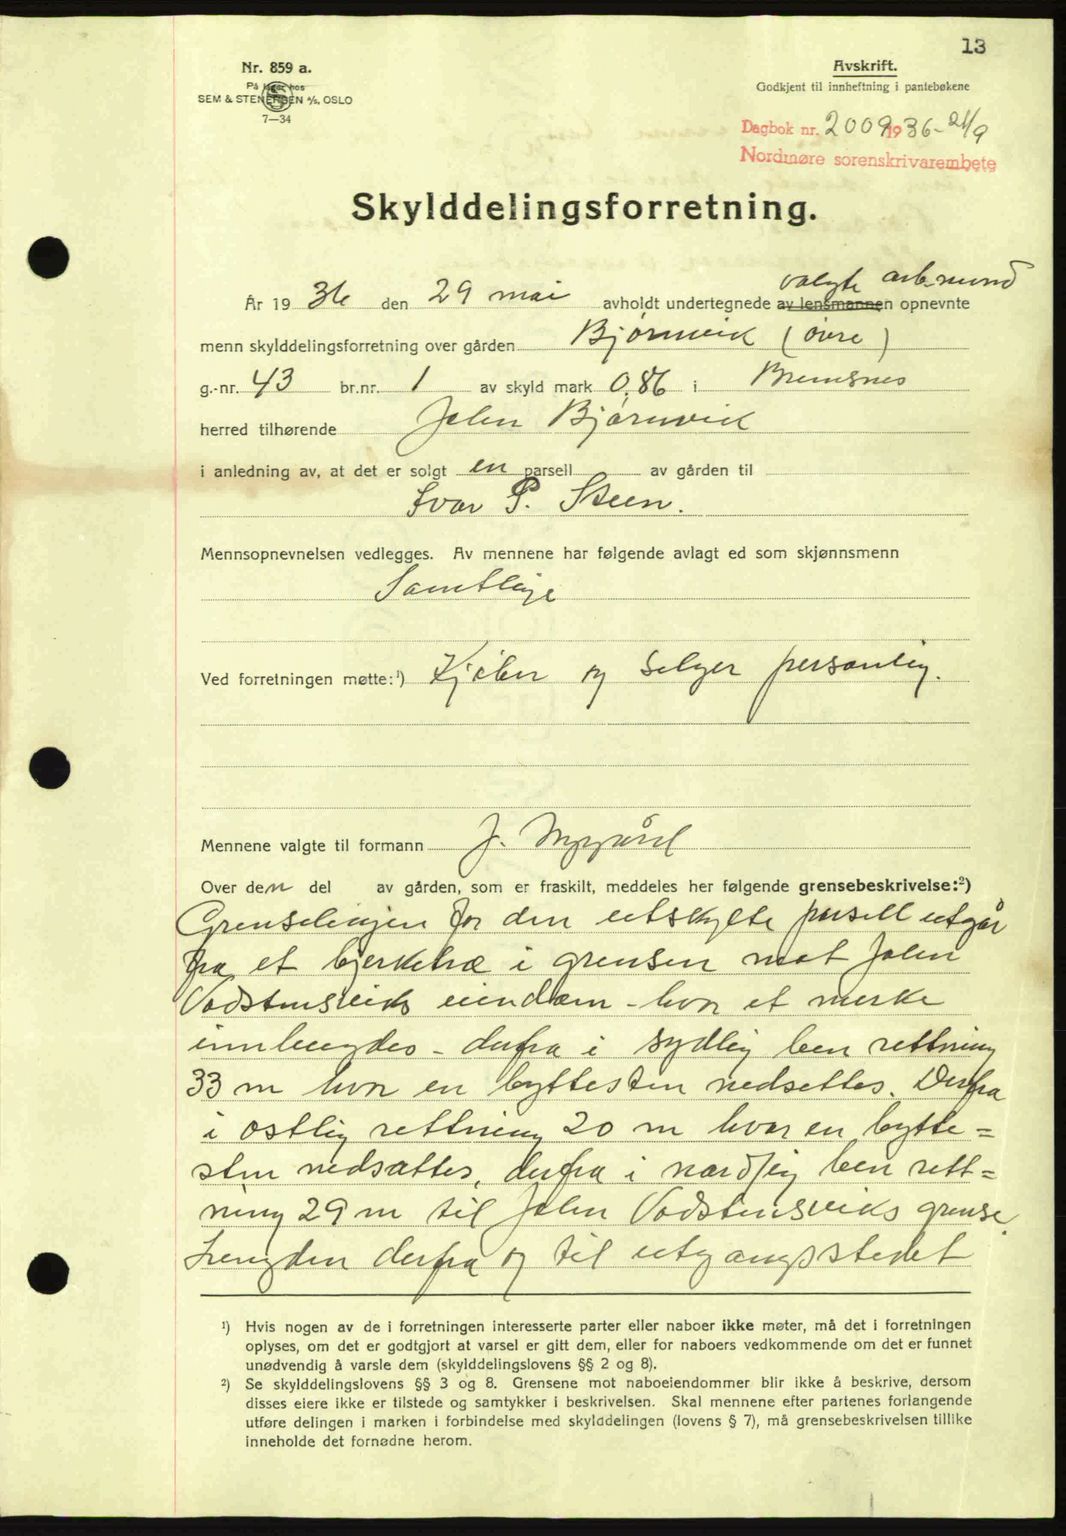 13
Nr. 859 a.
På lager hos
SEM & STENERSEN A/S, OSLO
7—34
Avskrift.
Godkjent til innheftning i pantebøkene
Dagbok nr. 2009 1936 - 21/9
Nordmøre sorenskrivarembete
Skylddelingsforretning.
valgte
År 1936 den 29 mai avholdt undertegnede av lensmannen opnevnte
menn skylddelingsforretning over gården Bjørnvik (øvre)
g.-nr. 43 br.nr. 1 av skyld mark 0,86 i Bremsnes
herred tilhørende John Bjørnvik
i anledning av, at det er solgt en parsell av gården til
Ivar P. Steen.
Mennsopnevnelsen vedlegges. Av mennene har følgende avlagt ed som skjønnsmenn
Samtlige
Ved forretningen møtte:¹) Kjøber og selger personlig.
Mennene valgte til formann J. Nygård
Over den del av gården, som er fraskilt, meddeles her følgende grensebeskrivelse:²)
Grenselinjen for den utskylte parsell utgår
fra et bjerketræ i grensen mot John
Vadstensviks eiendom - hvor et merke
innhugges - derfra i sydlig ben rettning
33 m hvor en byttesten nedsettes. Derfra
i østlig rettning 20 m hvor en bytte=
sten nedsættes, derfra i nordlig ben rett=
ning 29 m til John Vadstensviks grense.
Lengden derfra og til utgangsstedet
¹) Hvis nogen av de i forretningen interesserte parter eller naboer ikke møter, må det i forretningen
oplyses, om det er godtgjort at varsel er gitt dem, eller for naboers vedkommende om det er funnet
unødvendig å varsle dem (skylddelingslovens §§ 2 og 8).
²) Se skylddelingslovens §§ 3 og 8. Grensene mot naboeiendommer blir ikke å beskrive, dersom
disses eiere ikke er tilstede og samtykker i beskrivelsen. Skal mennene efter partenes forlangende
utføre delingen i marken i forbindelse med skylddelingen (lovens § 7), må grensebeskrivelsen tillike
inneholde det fornødne herom.